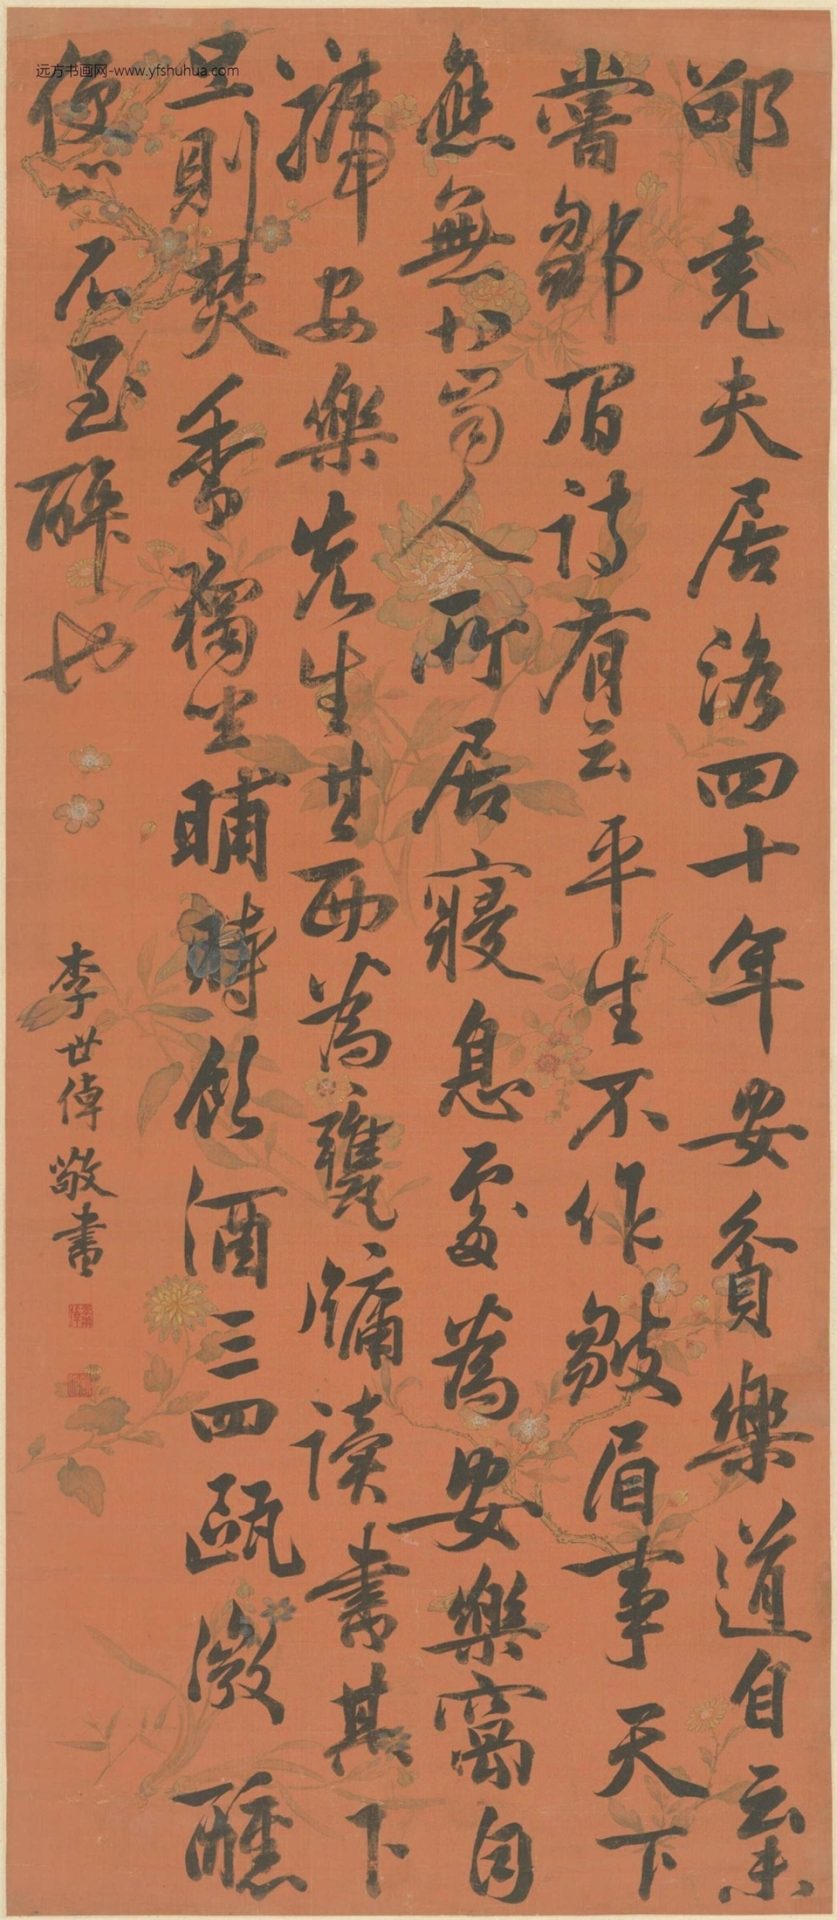 邵堯夫居洛四十年安貧樂道自云未
嘗皺眉詩有云平生不作皺眉事天下
應無切齒人所居寢息處為安樂窩自
號安樂先生其西為甕牖讀書其下
旦則焚香獨坐晡時飲酒三四甌微醺
便止不至醉也
李世倬敬書
远方书画网-www.yfshuhua.com